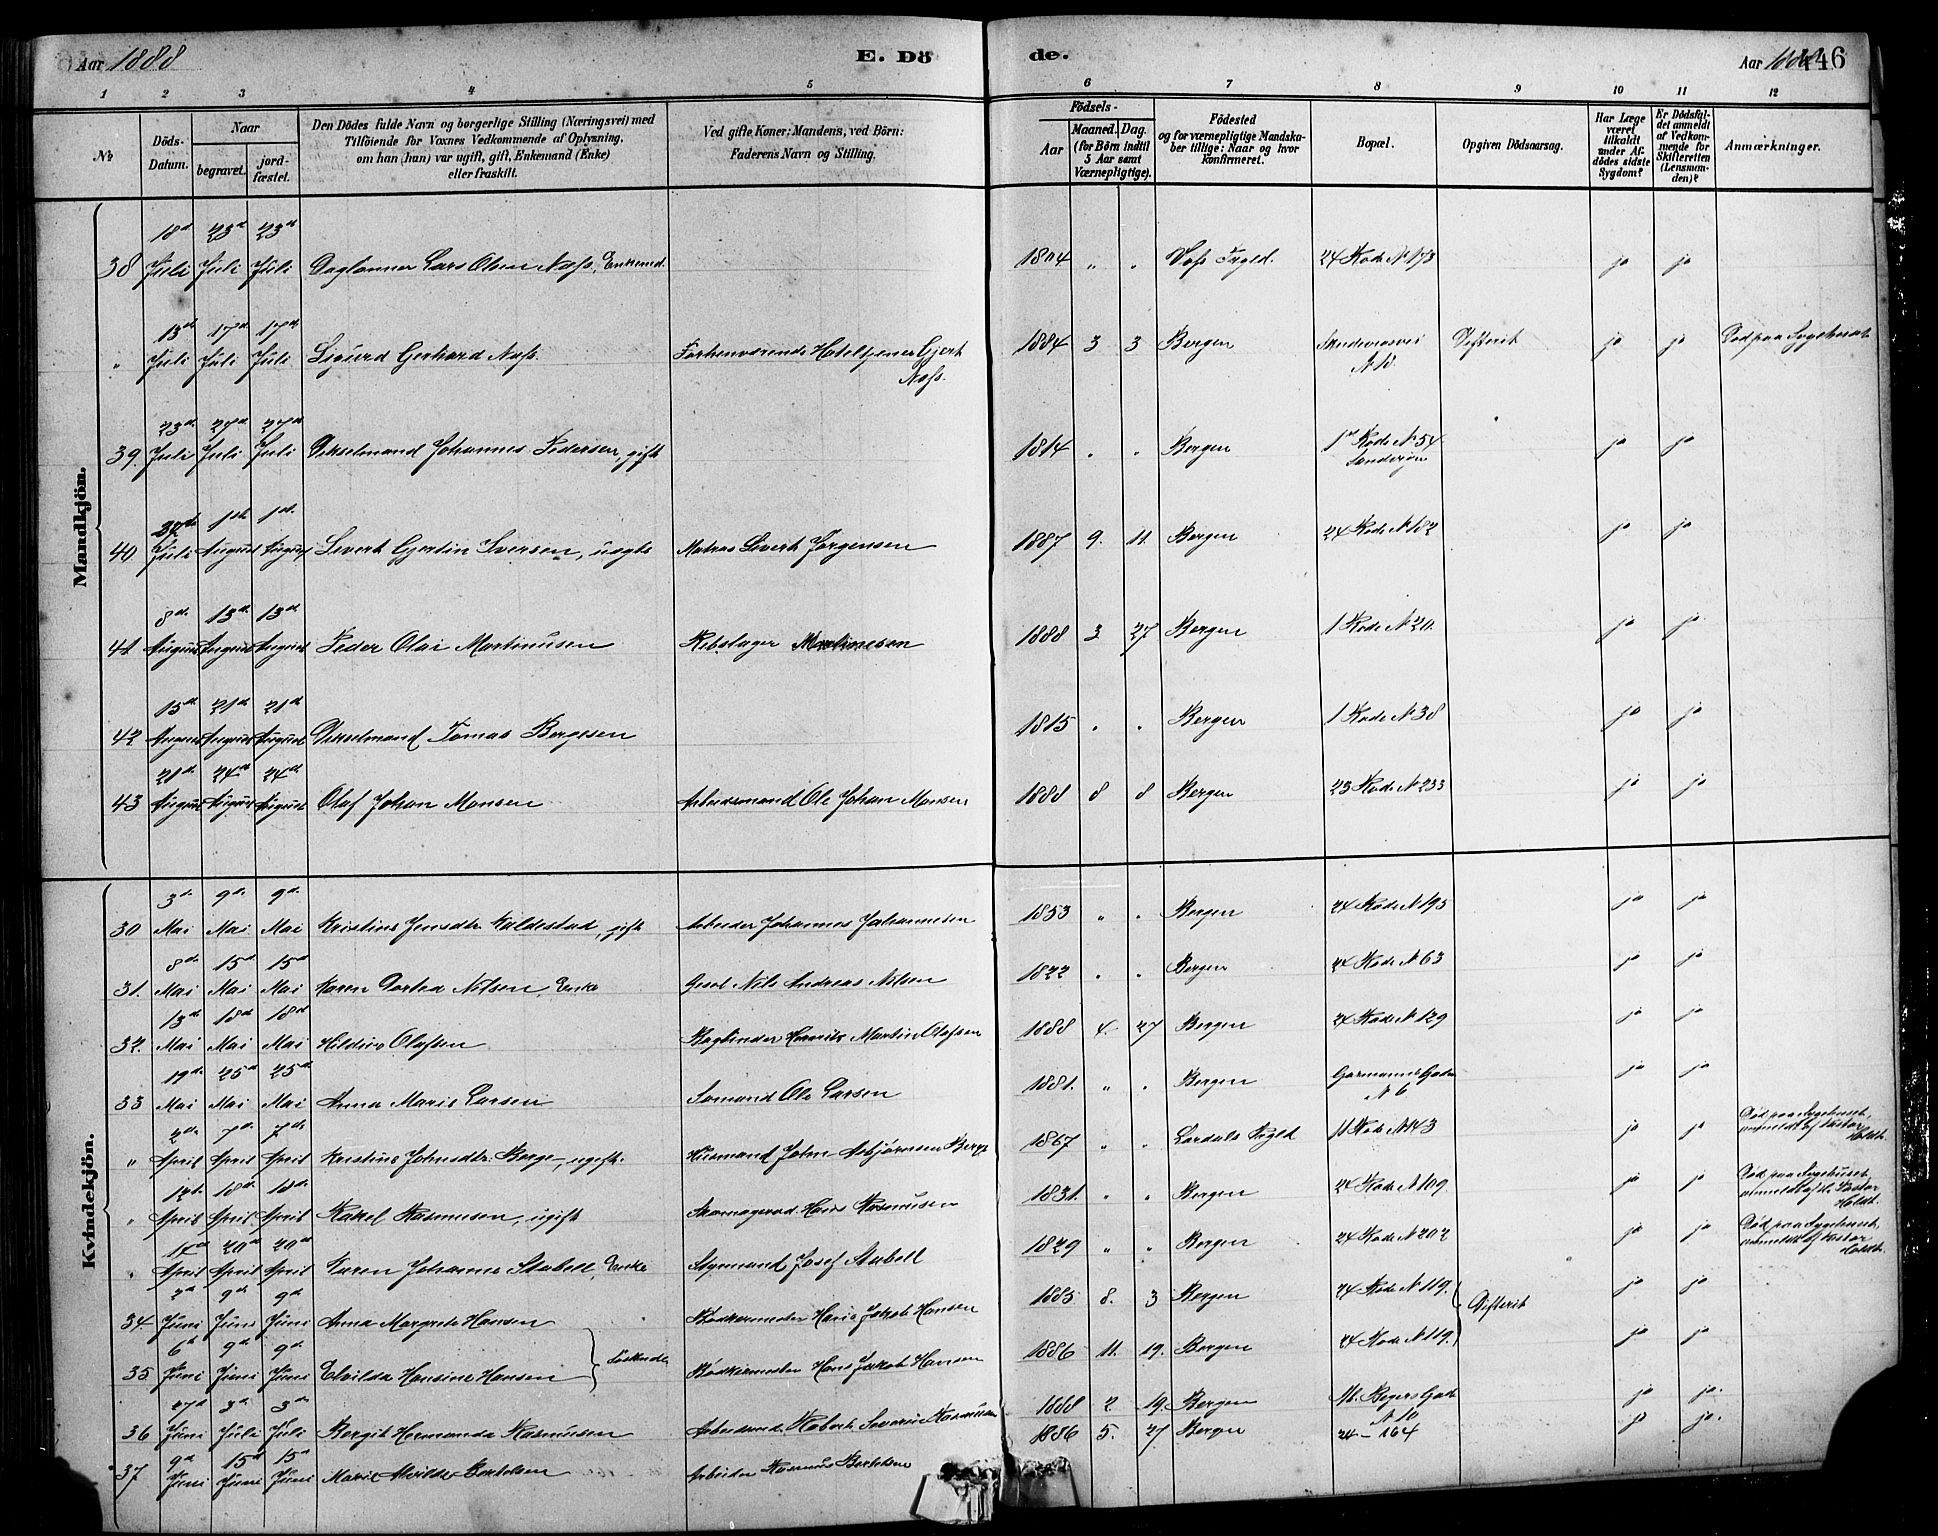 Aar 1888
E. Dö de.
Aar 1888
146
1 2 3 4 5 6 7 8 9 10 11 12
No
Döds-Datum.
Naar
begravet.
jordfæstet.
Den Dödes fulde Navn og borgerlige Stilling (Næringsvei) med
Tilföiende for Voxnes Vedkommende af Oplysning,
om han (hun) var ugift, gift, Enkemand (Enke)
eller fraskilt.
Ved gifte Koner: Mandens, ved Börn:
Faderens Navn og Stilling.
Födsels-
Aar
Maaned.
Dag.
(for Börn indtil
5 Aar samt
Værnepligtige).
Födested
og for værnepligtige Mandska-
ber tillige: Naar og hvor
konfirmeret.
Bopæl.
Opgiven Dödsaarsag.
Har Læge
været
tilkaldt
under Af-
dödes sidste
Sygdom?
Er Dödsfal-
det anmeldt
af Vedkom-
mende for
Skifteretten
(Lensman-
den)?
Anmærkninger.
Mandkjön.
18de 23de 23de
38 Juli Juli Juli Daglonner Lars Olsen Næss, Enkemd. 1804 " " Voss Prgld. 24 Rode N 173 ja ja
13de 17de 17de
" Juli Juli Juli Sigurd Gerhard Næss. Forhenværende Hoteltjener Gjert Næss. 1884 3 3 Bergen N 18. Difterit ja ja Død paa Sygehuset
23de 27de 27de
39. Juli Juli Juli Johannes Pedersen, gift 1814 " " Bergen 1ste Rode N 54 ja ja
1ste 1ste
40 Juli August August Sivert Gjertin Iversen, uægte Matros Sivert Jørgensen 1887 9. 11. Bergen 24 Rode N 182 ja ja
8de 13de 13de
41 August August August Peder Olai Martinusen Rebslager Martinusen 1888 3 27 Bergen 1 Rode N 20. ja ja
15de 21de 21de
42 August August August Tomas Børgesen 1815 " " Bergen 1 Rode N 38 ja ja
21de 24de 24de
43 August August August Olaf Johan Monsen Arbeidsmand Ole Johan Monsen 1888 8 8 Bergen 23 Rode N 233 ja ja
Kvindekjön.
3de 9de 9de
30 Mai Mai Mai Kristine Jensdtr. Kaldestad, gift Arbeider Johannes Johannesen 1853 " " Bergen 24 Rode N 195 ja ja
8de 15de 15de
31. Mai Mai Mai Karen Dortea Nilsen, Enke Nils Andreas Nilsen 1822 " " Bergen 24 Rode N 63 ja ja
13de 18de 18de
32. Mai Mai Mai Olafsen Bogbinder Martin Olafsen 1888 4 27 Bergen 24 Rode N 129 ja ja
19de 25de 25de
33 Mai Mai Mai Anna Marie Larsen Sømand Ole Larsen 1881. " " Bergen Garmanns Gade N 6 ja ja
2de 7de 7de
" April April April Kristine Johnsdtr. Berge, ugift. Husmand John Asbjørnsen Berge 1867 " " Lærdals Prgld ja ja Død paa Sygehuset, anmeldt af Pastor Holdt.
12de 18de 18de
" April April April Rakel Rasmusen, ugift Skomagersvd Hans Rasmusen 1831. " " Bergen 24 Rode N 109. ja ja Død paa Sygehuset anmeldt af Pastor Holdt.
14de 20de 20de
" April April April Karen Johanne Stabell, Enke Styrmand Josef Stabell 1829 " " Bergen 24 Rode N 202 ja ja Død paa Sygehuset, anmeldt af Pastor Holdt.
2de 9de 9de
34 Juni Juni Juni Anna Margrete Hansen Bødkermester Hans Jakob Hansen 1885 8. 3 Bergen 24 Rode N 119. Difterit ja ja
6te 9de 9de
35 Juni Juni Juni Elvilda Hansine Hansen Søskende Bødkermester Hans Jakob Hansen 1886 11. 19. Bergen 24 Rode N 119. ja ja
27de 3de 3de
36 Juni Juli Juli Bergit Hermande Rasmusen Arbeidsmd. Robert Severin Rasmusen 1888 2 19. Bergen M. Beyers Gade N 10 ja ja.
9de 15de 15
37 Juni Juni Juni Marie Alvilde Bertelsen Arbeider Rasmus Bertelsen 1886 5. 27 Bergen 24 – 164 ja ja.